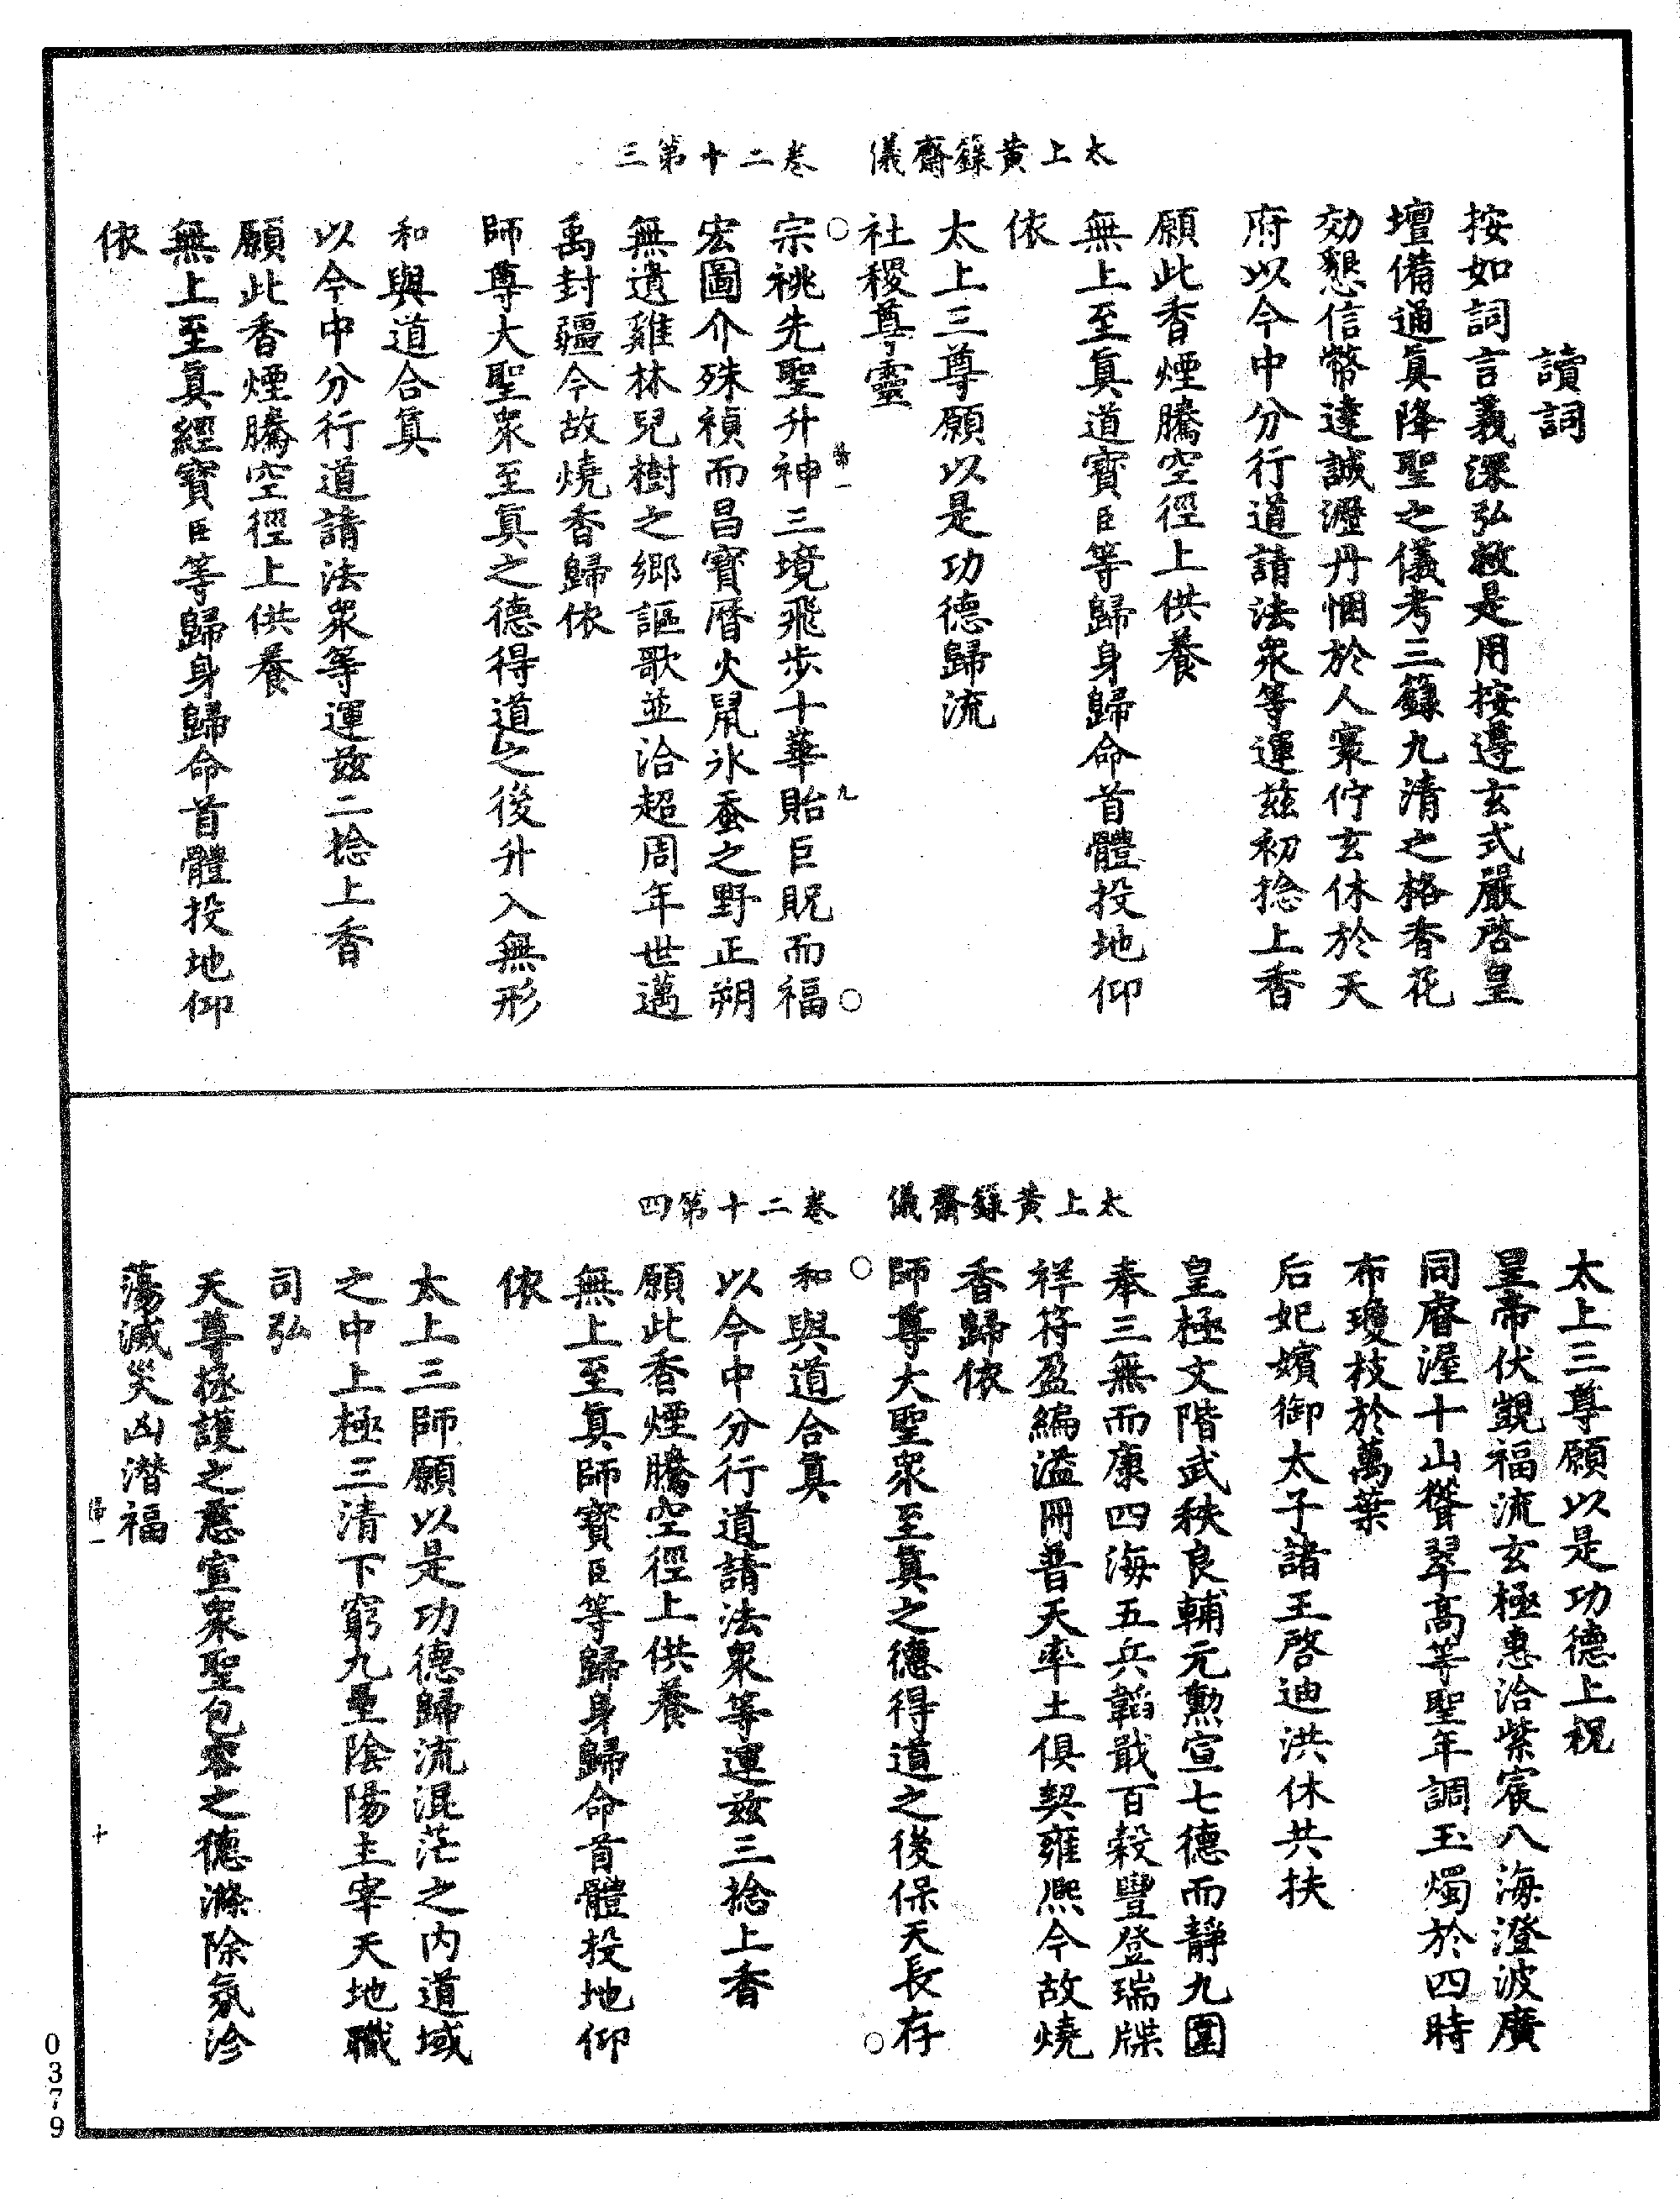 太上黃籙齋儀　卷二十第三
讀詞
按如詞言義深弘救是用按遵玄式嚴啓皇
壇備通眞降聖之儀考三籙九清之格香花
効懇信幣達誠瀝丹悃於人寰佇玄休於天
府以今中分行道請法衆等運茲初捻上香
願此香煙騰空徑上供養
無上至眞道寶臣等歸身歸命首體投地仰
依
太上三尊願以是功德歸流
社稷尊靈
宗祧先聖升神三境飛步十華貽巨貺而福
宏圖介殊禎而昌寶曆火鼠氷蚕之野正朔
無遺雞林兒樹之鄉謳歌並洽超周年世邁
禹封疆今故燒香歸依
師尊大聖衆至眞之德得道之後升入無形
和與道合眞
以今中分行道請法衆等運茲二捻上香
願此香煙騰空徑上供養
無上至眞經寶臣等歸身歸命首體投地仰
依
九
太上黃籙齋儀　卷二十第四
太上三尊願以是功德上祝
皇帝伏覬福流玄極惠洽紫宸八海澄波廣
同睿渥十山聳翠高等聖年調玉燭於四時
布瓊枝於萬葉
后妃嬪御太子諸王啓迪洪休共扶
皇極文階武秩良輔元勲宣七德而靜九圍
奉三無而康四海五兵韜戢百穀豐登瑞牒
祥符盈編溢冊普天率土俱契雍熙今故燒
香歸依
師尊大聖衆至眞之德得道之後保天長存
和與道合眞
以今中分行道請法衆等運茲三捻上香
願此香煙騰空徑上供養
無上至眞師寶臣等歸身歸命首體投地仰
依
太上三師願以是功德歸流混茫之內道域
之中上極三清下窮九壘陰陽主宰天地職
司弘
天尊拯護之慈宣衆聖包容之德滌除氛沴
蕩滅災凶潛福
十
0379